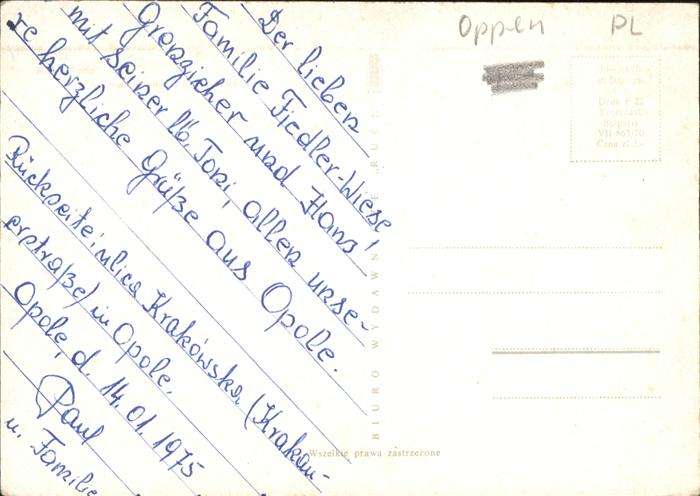 Der lieben
Familie Fiedler-Wiese,
Grenzicher und Hans
mit seiner lb. Toni, allen unse-
re herzliche Grüße aus Opole.
Rückseite: ulica Krakówska (Krakau-
erstraße) in Opole.
Opole, d. 14.01.1975
Paul
u. Familie
Oppeln PL
BIURO WYDAWNICZE „RUCH”
Wszelkie prawa zastrzeżone